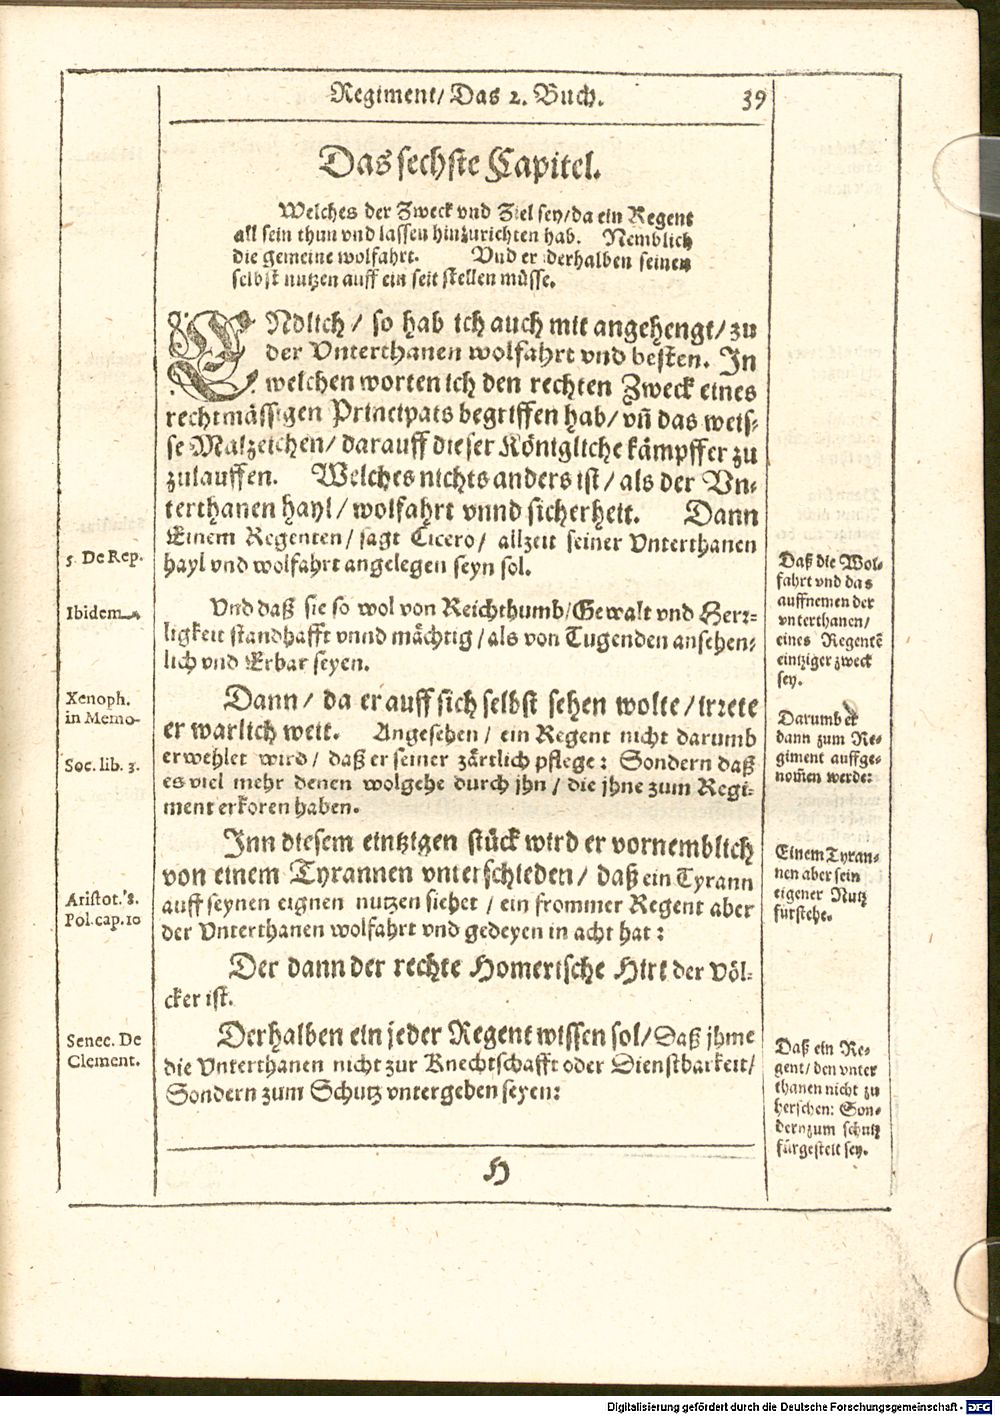 Regiment/ Das 2. Buch. 39
Das sechste Capitel.
Welches der Zweck vnd Ziel sey/ da ein Regent
all sein thun vnd lassen hinzurichten hab. Nemblich
die gemeine wolfahrt. Vnd er derhalben seinen
selbst nutzen auff ein seit stellen müsse.
ENdlich/ so hab ich auch mit angehengt/ zu
der Vnterthanen wolfahrt vnd besten. In
welchen worten ich den rechten Zweck eines
rechtmässigen Principats begriffen hab/ vñ das weis-
se Malzeichen/ darauff dieser Königliche kämpffer zu
zulauffen. Welches nichts anders ist/ als der Vn-
terthanen hayl/ wolfahrt vnnd sicherheit. Dann
Einem Regenten/ sagt Cicero/ allzeit seiner Vnterthanen
hayl vnd wolfahrt angelegen seyn sol.
5. De Rep.
Daß die Wol-
fahrt vnd das
auffnemen der
vnterthanen/
eines Regentē
eintziger zweck
sey.
Vnd daß sie so wol von Reichthumb/ Gewalt vnd Herr-
ligkeit standhafft vnnd mächtig/ als von Tugenden ansehen-
lich vnd Erbar seyen.
Ibidem
Dann/ da er auff sich selbst sehen wolte/ irrete
er warlich weit. Angesehen/ ein Regent nicht darumb
erwehlet wird/ daß er seiner zärtlich pflege: Sondern daß
es viel mehr denen wolgehe durch jhn/ die jhne zum Regi-
ment erkoren haben.
Xenoph.
in Memo-
Soc. lib. 3.
Darumb er
dann zum Re-
giment auffge-
nom̄en werde:
Inn diesem eintzigen stück wird er vornemblich
von einem Tyrannen vnterschieden/ daß ein Tyrann
auff seynen eignen nutzen siehet/ ein frommer Regent aber
der Vnterthanen wolfahrt vnd gedeyen in acht hat:
Aristot. 8.
Pol. cap. 10
Einem Tyran-
nen aber sein
eigener Nutz
fürstehe.
Der dann der rechte Homerische Hirt der Völ-
cker ist.
Derhalben ein jeder Regent wissen sol/ Daß jhme
die Vnterthanen nicht zur Knechtschafft oder Dienstbarkeit/
Sondern zum Schutz vntergeben seyen:
Senec. De
Clement.
Daß ein Re-
gent/ den vnter
thanen nicht zu
herschen: Son-
dern zum schutz
fürgestelt sey.
H
Digitalisierung gefördert durch die Deutsche Forschungsgemeinschaft - DFG